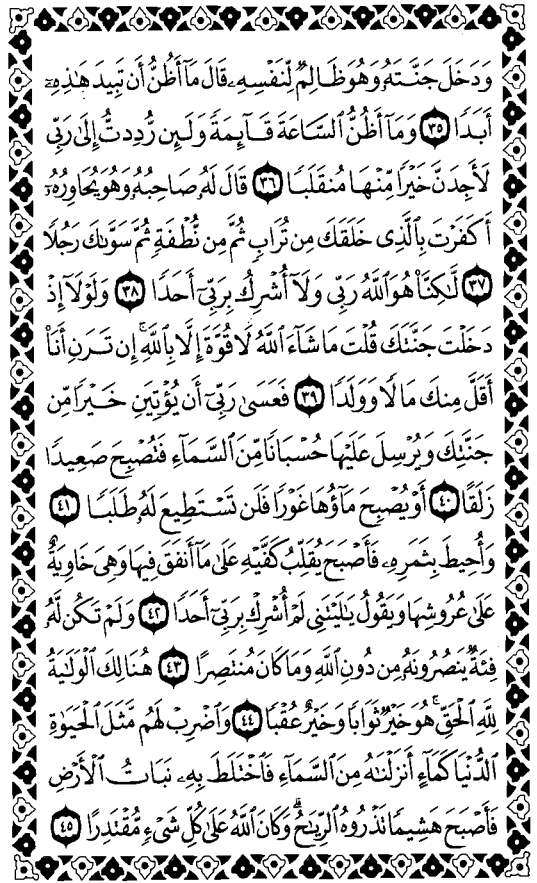 وَدَخَلَ جَنَّتَهُۥ وَهُوَ ظَالِمٌ لِّنَفْسِهِۦ قَالَ مَآ أَظُنُّ أَن تَبِيدَ هَٰذِهِۦٓ
أَبَدًا ٣٥ وَمَآ أَظُنُّ ٱلسَّاعَةَ قَآئِمَةً وَلَئِن رُّدِدتُّ إِلَىٰ رَبِّى
لَأَجِدَنَّ خَيْرًا مِّنْهَا مُنقَلَبًا ٣٦ قَالَ لَهُۥ صَاحِبُهُۥ وَهُوَ يُحَاوِرُهُۥٓ
أَكَفَرْتَ بِٱلَّذِى خَلَقَكَ مِن تُرَابٍ ثُمَّ مِن نُّطْفَةٍ ثُمَّ سَوَّىٰكَ رَجُلًا
٣٧ لَّٰكِنَّا۠ هُوَ ٱللَّهُ رَبِّى وَلَآ أُشْرِكُ بِرَبِّىٓ أَحَدًا ٣٨ وَلَوْلَآ إِذْ
دَخَلْتَ جَنَّتَكَ قُلْتَ مَا شَآءَ ٱللَّهُ لَا قُوَّةَ إِلَّا بِٱللَّهِ ۚ إِن تَرَنِ أَنَا۠
أَقَلَّ مِنكَ مَالًا وَوَلَدًا ٣٩ فَعَسَىٰ رَبِّىٓ أَن يُؤْتِيَنِ خَيْرًا مِّن
جَنَّتِكَ وَيُرْسِلَ عَلَيْهَا حُسْبَانًا مِّنَ ٱلسَّمَآءِ فَتُصْبِحَ صَعِيدًا
زَلَقًا ٤٠ أَوْ يُصْبِحَ مَآؤُهَا غَوْرًا فَلَن تَسْتَطِيعَ لَهُۥ طَلَبًا ٤١
وَأُحِيطَ بِثَمَرِهِۦ فَأَصْبَحَ يُقَلِّبُ كَفَّيْهِ عَلَىٰ مَآ أَنفَقَ فِيهَا وَهِىَ خَاوِيَةٌ
عَلَىٰ عُرُوشِهَا وَيَقُولُ يَٰلَيْتَنِى لَمْ أُشْرِكْ بِرَبِّىٓ أَحَدًا ٤٢ وَلَمْ تَكُن لَّهُۥ
فِئَةٌ يَنصُرُونَهُۥ مِن دُونِ ٱللَّهِ وَمَا كَانَ مُنتَصِرًا ٤٣ هُنَالِكَ ٱلْوَلَٰيَةُ
لِلَّهِ ٱلْحَقِّ ۚ هُوَ خَيْرٌ ثَوَابًا وَخَيْرٌ عُقْبًا ٤٤ وَٱضْرِبْ لَهُم مَّثَلَ ٱلْحَيَوٰةِ
ٱلدُّنْيَا كَمَآءٍ أَنزَلْنَٰهُ مِنَ ٱلسَّمَآءِ فَٱخْتَلَطَ بِهِۦ نَبَاتُ ٱلْأَرْضِ
فَأَصْبَحَ هَشِيمًا تَذْرُوهُ ٱلرِّيَٰحُ ۗ وَكَانَ ٱللَّهُ عَلَىٰ كُلِّ شَىْءٍ مُّقْتَدِرًا ٤٥